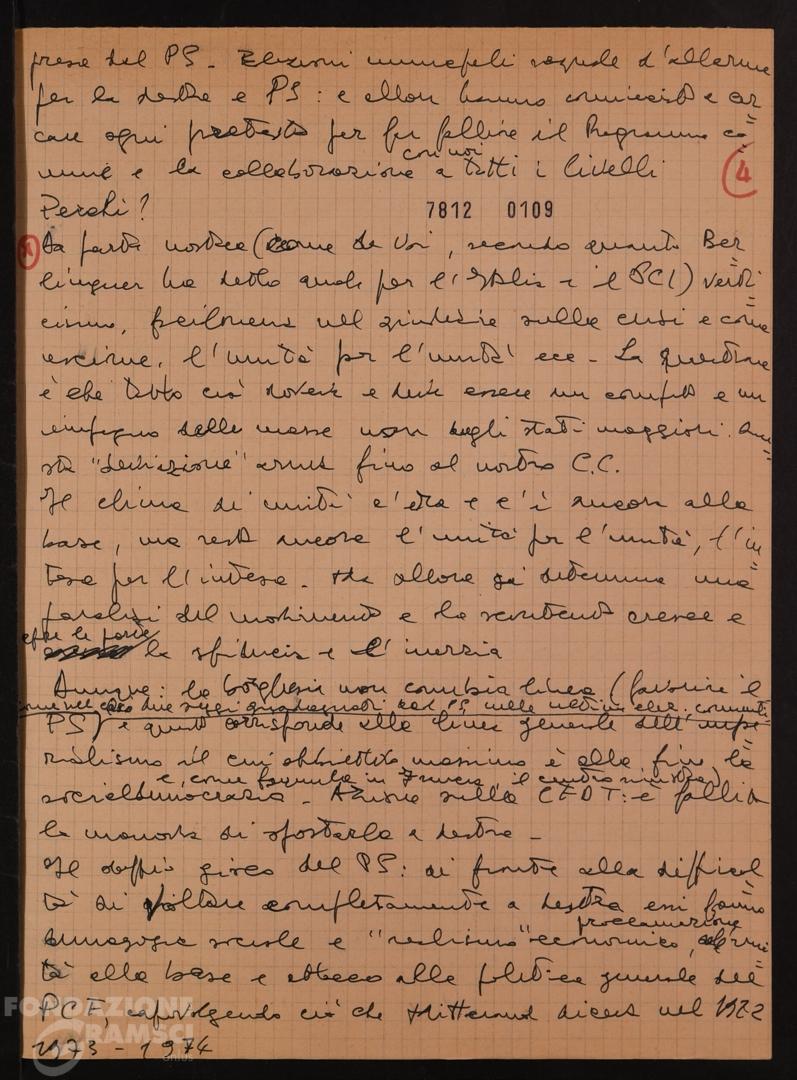 presa del PS. Elezioni municipali segnale d'allarme
per la destra e PS: e allora hanno cominciato a cer=
care ogni pretesto per far fallire il Programma co=
mune e la collaborazione con voi a tutti i livelli
4
Perché?
7812 0109
Da parte nostra (come da voi, secondo quanto Ber=
linguer ha detto anche per l'Italia e il PCI) verti=
cismo, faciloneria nel giudizio sulla crisi e come
uscirne, l'unità per l'unità ecc - La questione
è che tutto ciò doveva e deve essere un compito e un
impegno delle masse non degli stati maggiori. Que=
sta "deviazione" arriva fino al nostro C.C.
Il clima di unità c'era e c'è ancora alla
base, ma resta ancora l'unità per l'unità, l'in=
tesa per l'intesa. Ma allora si determina una
paralisi del movimento e lo scontento cresce e
la sfiducia e l'inerzia
Dunque: la borghesia non cambia linea (favorire il
come nel caso dei seggi guadagnati dal PS nelle ultime elez.
PS) e questo corrisponde alla linea generale dell'impe=
rialismo il cui obbiettivo massimo è alla fine la
e, come formula in Francia, il centro sinistra)
socialdemocrazia. Azione sulla CFDT: è fallita
la manovra di spostarla a destra -
Il doppio gioco del PS: di fronte alla difficol=
tà di voltare completamente a destra essi fanno
proclamazione
demagogia sociale e "realismo" economico, all'uni=
tà alla base e attacco alla politica generale del
PCF, capovolgendo ciò che Mitterand diceva nel 1972
1973 - 1974
FONDAZIONE
GRAMSCI
ONLUS